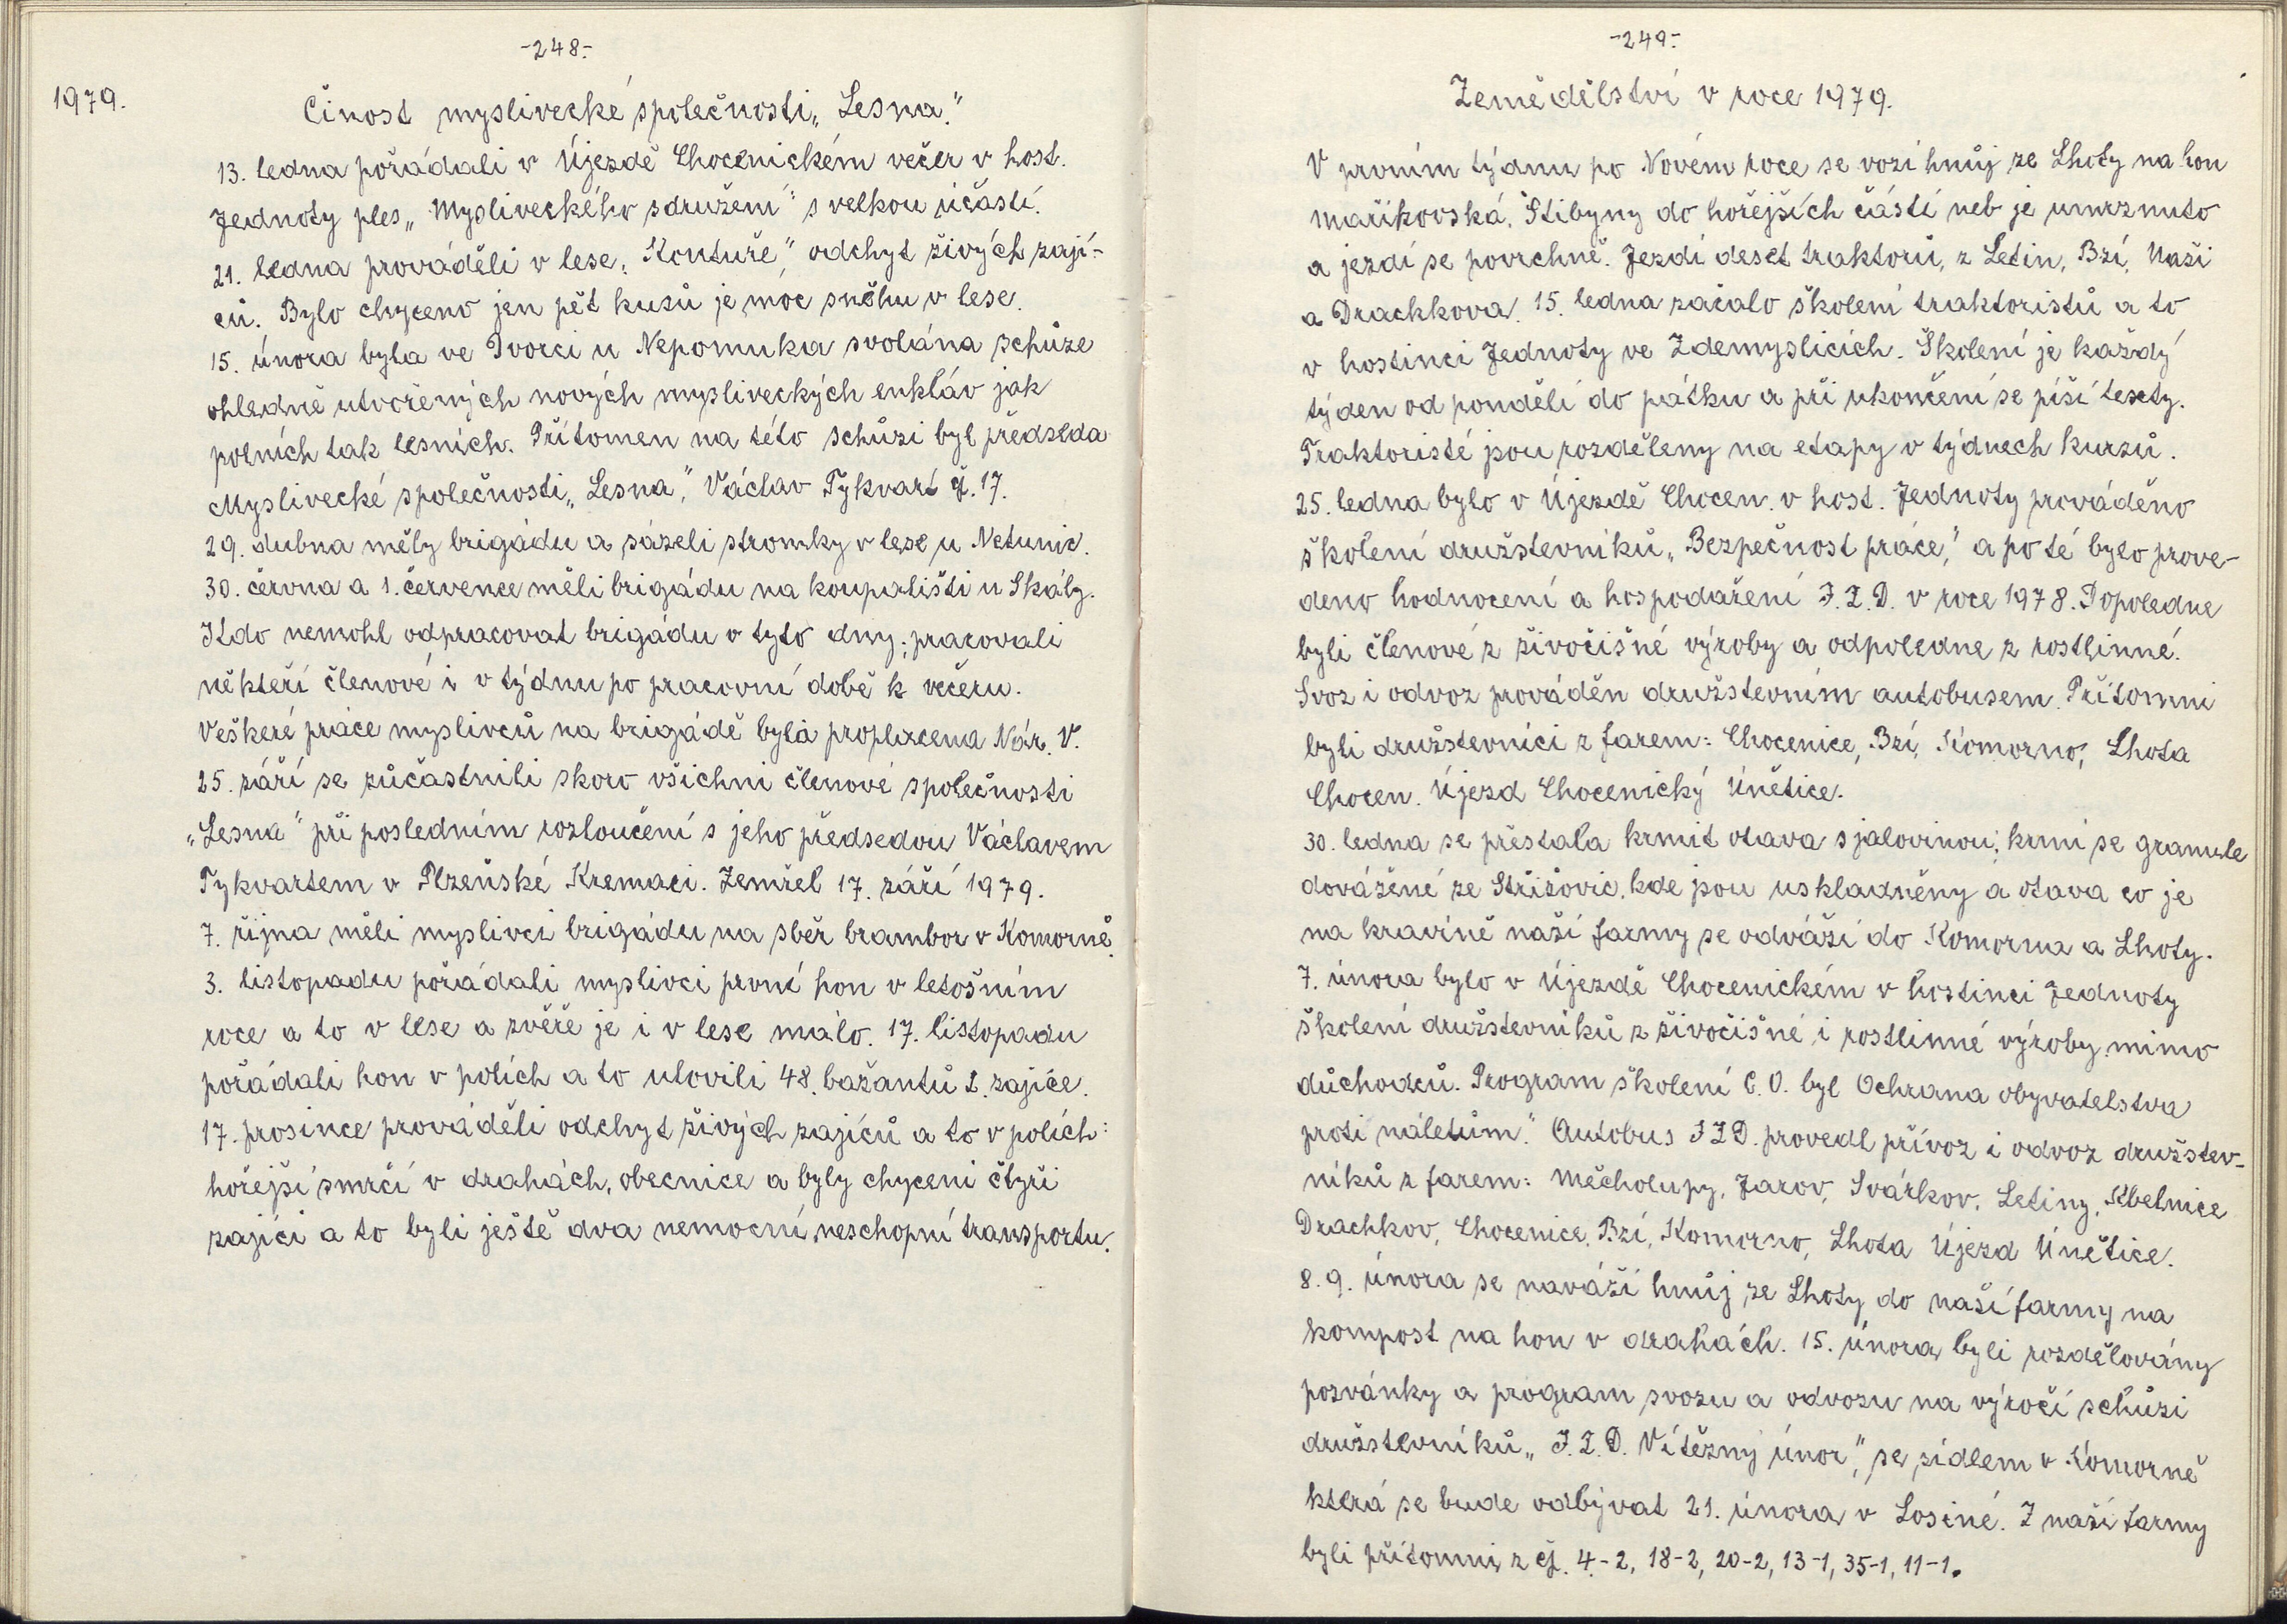 -248.-
1979.
Činost myslivecké společnosti „Lesna."
13. ledna pořádali v Újezdě Chocenickém večer v host.
Jednoty ples „Mysliveckého sdružení" s velkou účastí.
21. ledna prováděli v lese „Kontuře", odchyt živých zají-
ců. Bylo chyceno jen pět kusů je moc sněhu v lese.
15. února byla ve Dvorci u Nepomuka svolána schůze
ohledně utvořených nových mysliveckých enkláv jak
polních tak lesních. Přítomen na této schůzi byl předseda
Myslivecké společnosti „Lesna", Václav Tykvart č. 17.
29. dubna měly brigádu a sázeli stromky v lese u Netunic.
30. června a 1. července měli brigádu na koupališti u Skály.
Kdo nemohl odpracovat brigádu v tyto dny; pracovali
někteří členové i v týdnu po pracovní době k večeru.
Veškeré práce myslivců na brigádě byla proplacena Nár. V.
25. září se zůčastnili skoro všichni členové společnosti
„Lesna" při posledním rozloučení s jeho předsedou Václavem
Tykvartem v Plzeňské Kremaci. Zemřel 17. září 1979.
7. října měli myslivci brigádu na sběr brambor v Komorně.
3. listopadu pořádali myslivci první hon v letošním
roce a to v lese a zvěře je i v lese málo. 17. listopadu
pořádali hon v polích a to ulovili 48. bažantů 2. zajíce.
17. prosince prováděli odchyt živých zajíců a to v polích:
hořejší smrčí v drahách, obecnice a byly chyceni čtyři
zajíci a to byli ještě dva nemocní, neschopní transportu.
-249.-
Zemědělství v roce 1979.
V prvním týdnu po Novém roce se vozí hnůj ze Lhoty na hon
Maříkovská, Štibyny do hořejších částí neb je umrznuto
a jezdí se povrchně. Jezdí deset traktorů, z Letin, Bzí, Naší
a Drachkova. 15. ledna začalo školení traktoristů a to
v hostinci Jednoty ve Zdemyslicích. Školení je každý
týden od pondělí do pátku a při ukončení se píší testy.
Traktoristé jsou rozděleny na etapy v týdnech kurzů.
25. ledna bylo v Újezdě Chocen. v host. Jednoty prováděno
školení družstevníků „Bezpečnost práce", a po té bylo prove-
deno hodnocení a hospodaření J.Z.D. v roce 1978. Dopoledne
byli členové z živočišné výroby a odpoledne z rostlinné.
Svoz i odvoz prováděn družstevním autobusem. Přítomni
byli družstevníci z farem: Chocenice, Bzí, Komorno, Lhota
Chocen. Újezd Chocenický Únětice.
30. ledna se přestala krmit otava s jalovinou; krmí se granule
dovážené ze Střížovic, kde jsou uskladněny a otava co je
na kravíně naší farmy se odváží do Komorna a Lhoty.
7. února bylo v Újezdě Chocenickém v hostinci Jednoty
školení družstevníků z živočišné i rostlinné výroby mimo
důchodců. Program školení C.O. byl Ochrana obyvatelstva
proti náletům." Autobus JZD. provedl přívoz i odvoz družstev-
níků z farem: Měcholupy, Žarov, Svárkov, Letiny, Kbelnice
Drachkov, Chocenice, Bzí, Komorno, Lhota Újezd Únětice.
8. 9. února se naváží hnůj ze Lhoty do naší farmy na
kompost na hon v drahách. 15. února byli rozdělovány
pozvánky a program svozu a odvozu na výročí schůzi
družstevníků „J.Z.D. Vítězný únor", se sídlem v Komorně
která se bude odbývat 21. února v Losiné. Z naší farmy
byli přítomni z čj. 4.-2, 18-2, 20-2, 13-1, 35-1, 11-1.